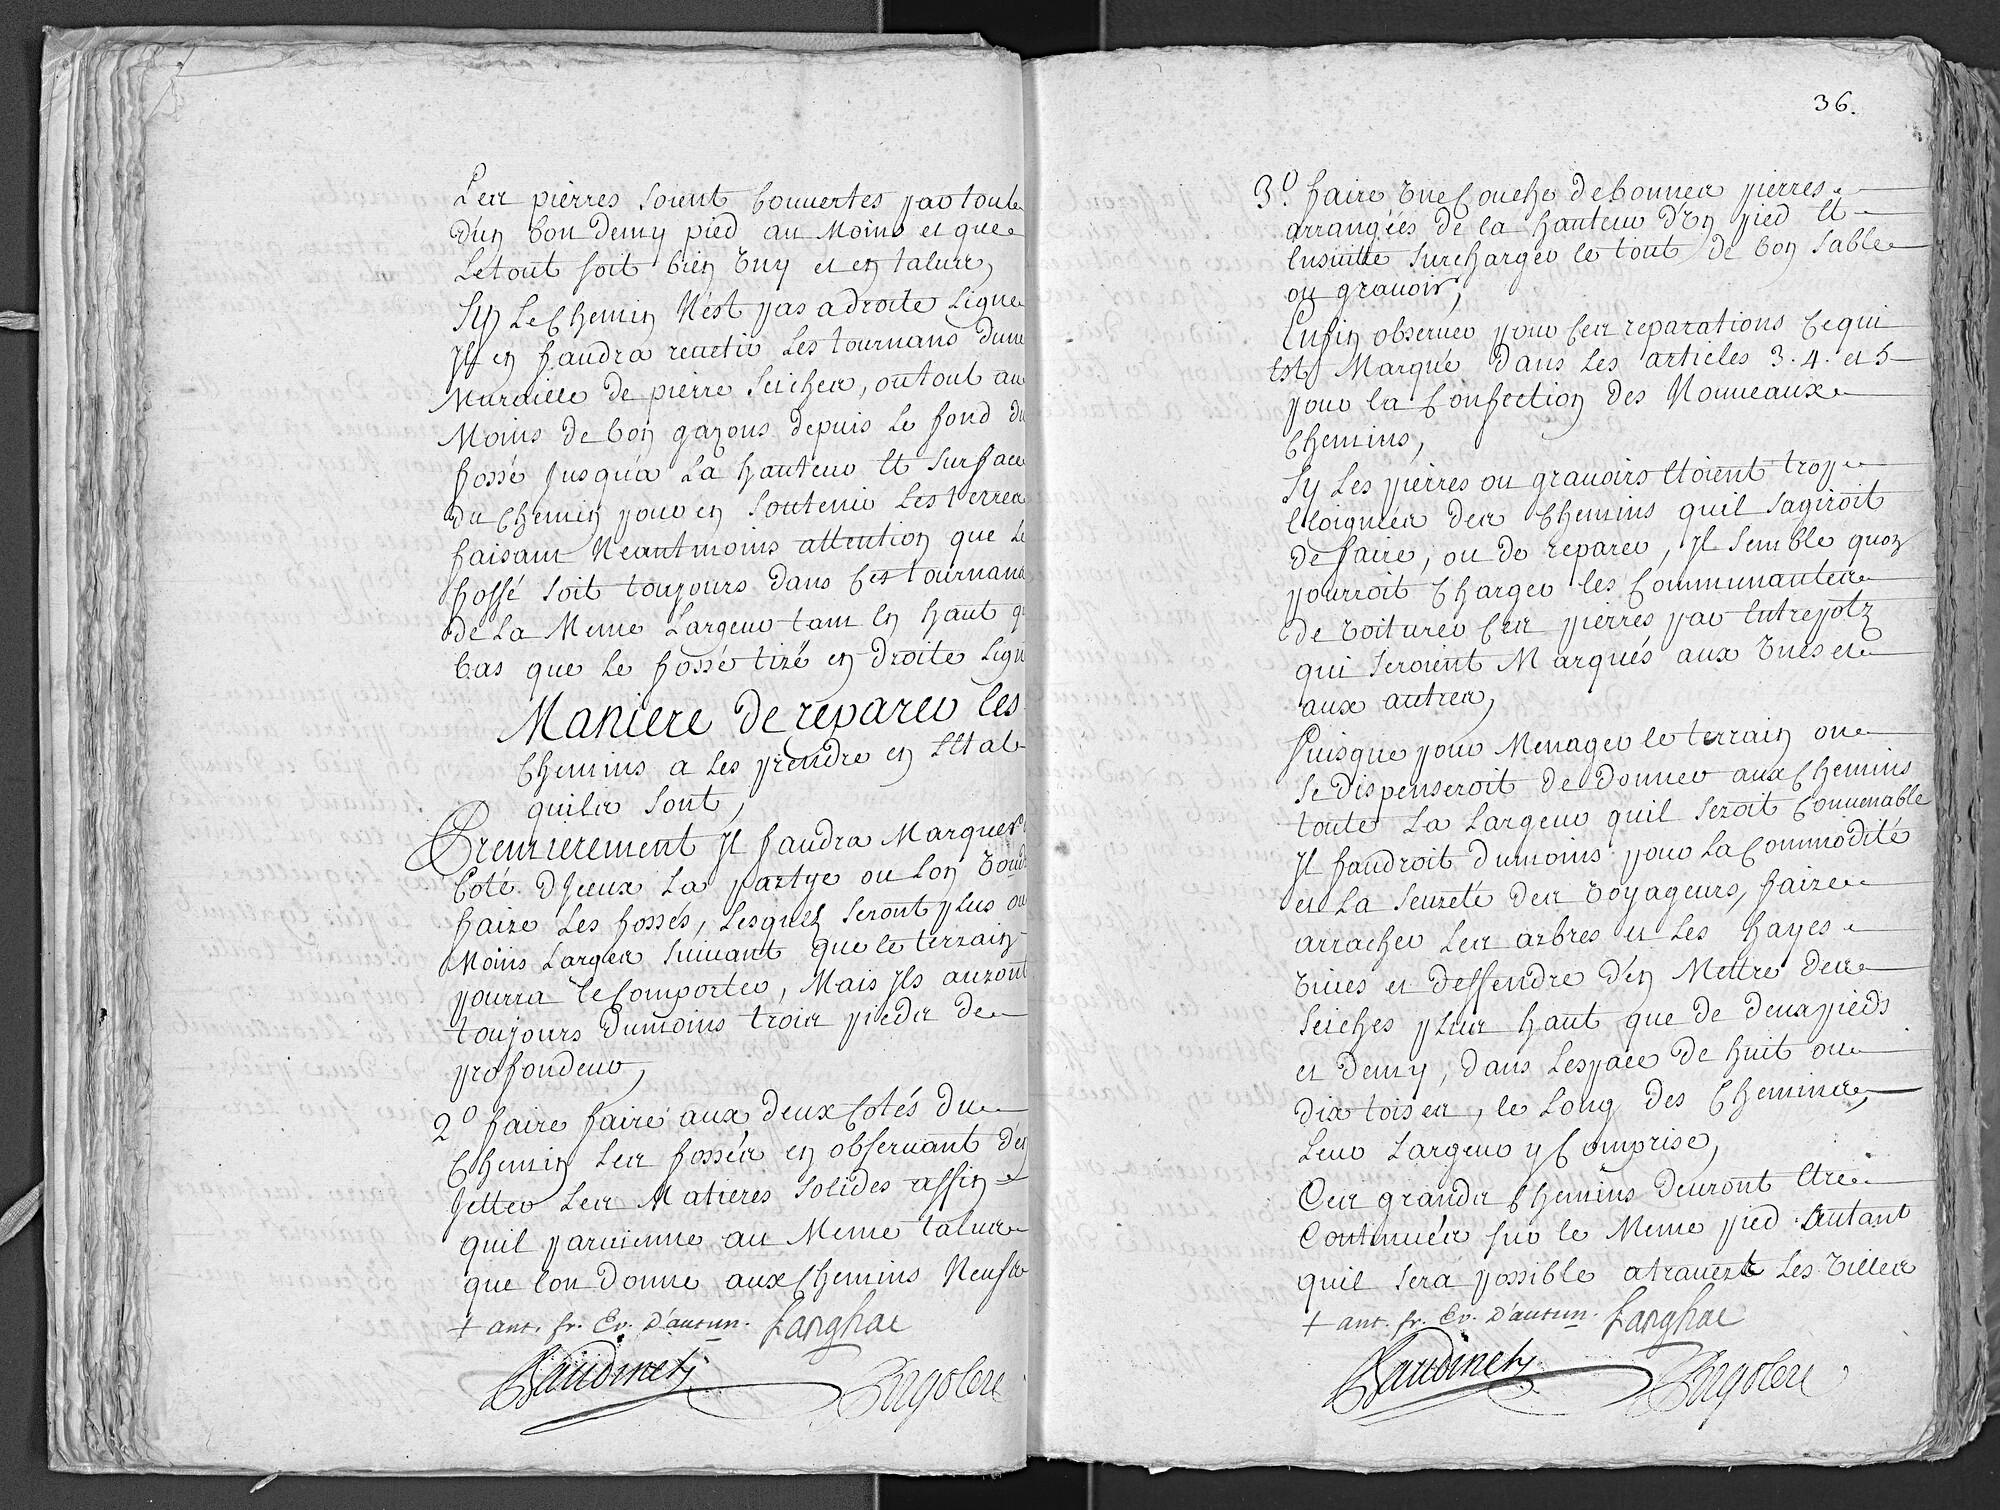 Les pierres soient Couuertes par toute
d'un bon demy pied au Moins et que
Letout soit bien Vny et en talus,
Sy Le Chemin N'est pas a droite Ligne
Jl en faudra reuetir Les tournans dune
Muraille de pierre Seiches, ou tout au
Moins de bon gazons depuis Le fond du
fossé Jusqu'a La hauteur Et Surface
du Chemin pour en Soutenir Les terres
faisant Neantmoins attention que Le
fossé Soit toujours dans Ces tournans
de La Meme Largeur tant En haut q
bas que Le fossé tiré en droite Lign
Maniere de reparer les
Chemins a Les prendre en Létat
quils Sont,
Premierement Jl faudra Marquer
Coté D'Jceux La partye ou Lon Voudr
faire Les fossés, Lesquels Seront plus ou
Moins Larges Suiuant que le terrain
pourra le Comporter, Mais Jls auront
toujours dumoins trois pieds de
profondeur,
2º faire faire aux deux Cotés du
Chemin Les fossés en obseruant d'en
Jetter Les Matieres Solides affin
quil paruienne au Meme talus
que Lon donne aux Chemins Neufs
+ ant. fr. Ev. D'autun. Langhac
Baudinet Rigoley
36.
3º. faire Vne Couche de bonnes pierres
arrangées de la hauteur d'Vn pied Et
Ensuitte Surcharger le tout de bon Sable
ou grauois,
Enfin obseruer pour Ces reparations Cequi
Est Marqué dans Les articles 3. 4. et 5
pour la Confection des Nouueaux
Chemins,
Sy Les pierres ou grauoirs Etoient trop
Eloignées des Chemins quil Sagiroit
de faire, ou de reparer, Jl Semble quon
pourroit Charger les Communautes
de Voiturer Ces pierres par Entrepotz
qui Seroient Marqués aux Vnes et
aux autres,
Puisque pour Menager le terrain on
Se dispenseroit de donner aux Chemins
toute La Largeur quil Seroit Conuenable
Jl faudroit dumoins pour La Commodité
et La Seureté des Voyageurs, faire
arracher Les arbres et Les hayes
Viues et deffendre d'en Mettre de
Seiches plus haut que de deux pieds
et demy, dans Lespace de huit ou
dix toises, le Long des Chemins,
Leur Largeur y Comprise,
Ces grands Chemins deuront Etre
Continués sur le Meme pied Autant
quil Sera possible atrauers Les Villes
+ ant. fr. Ev. D'autun. Langhac
Baudinet Rigoley